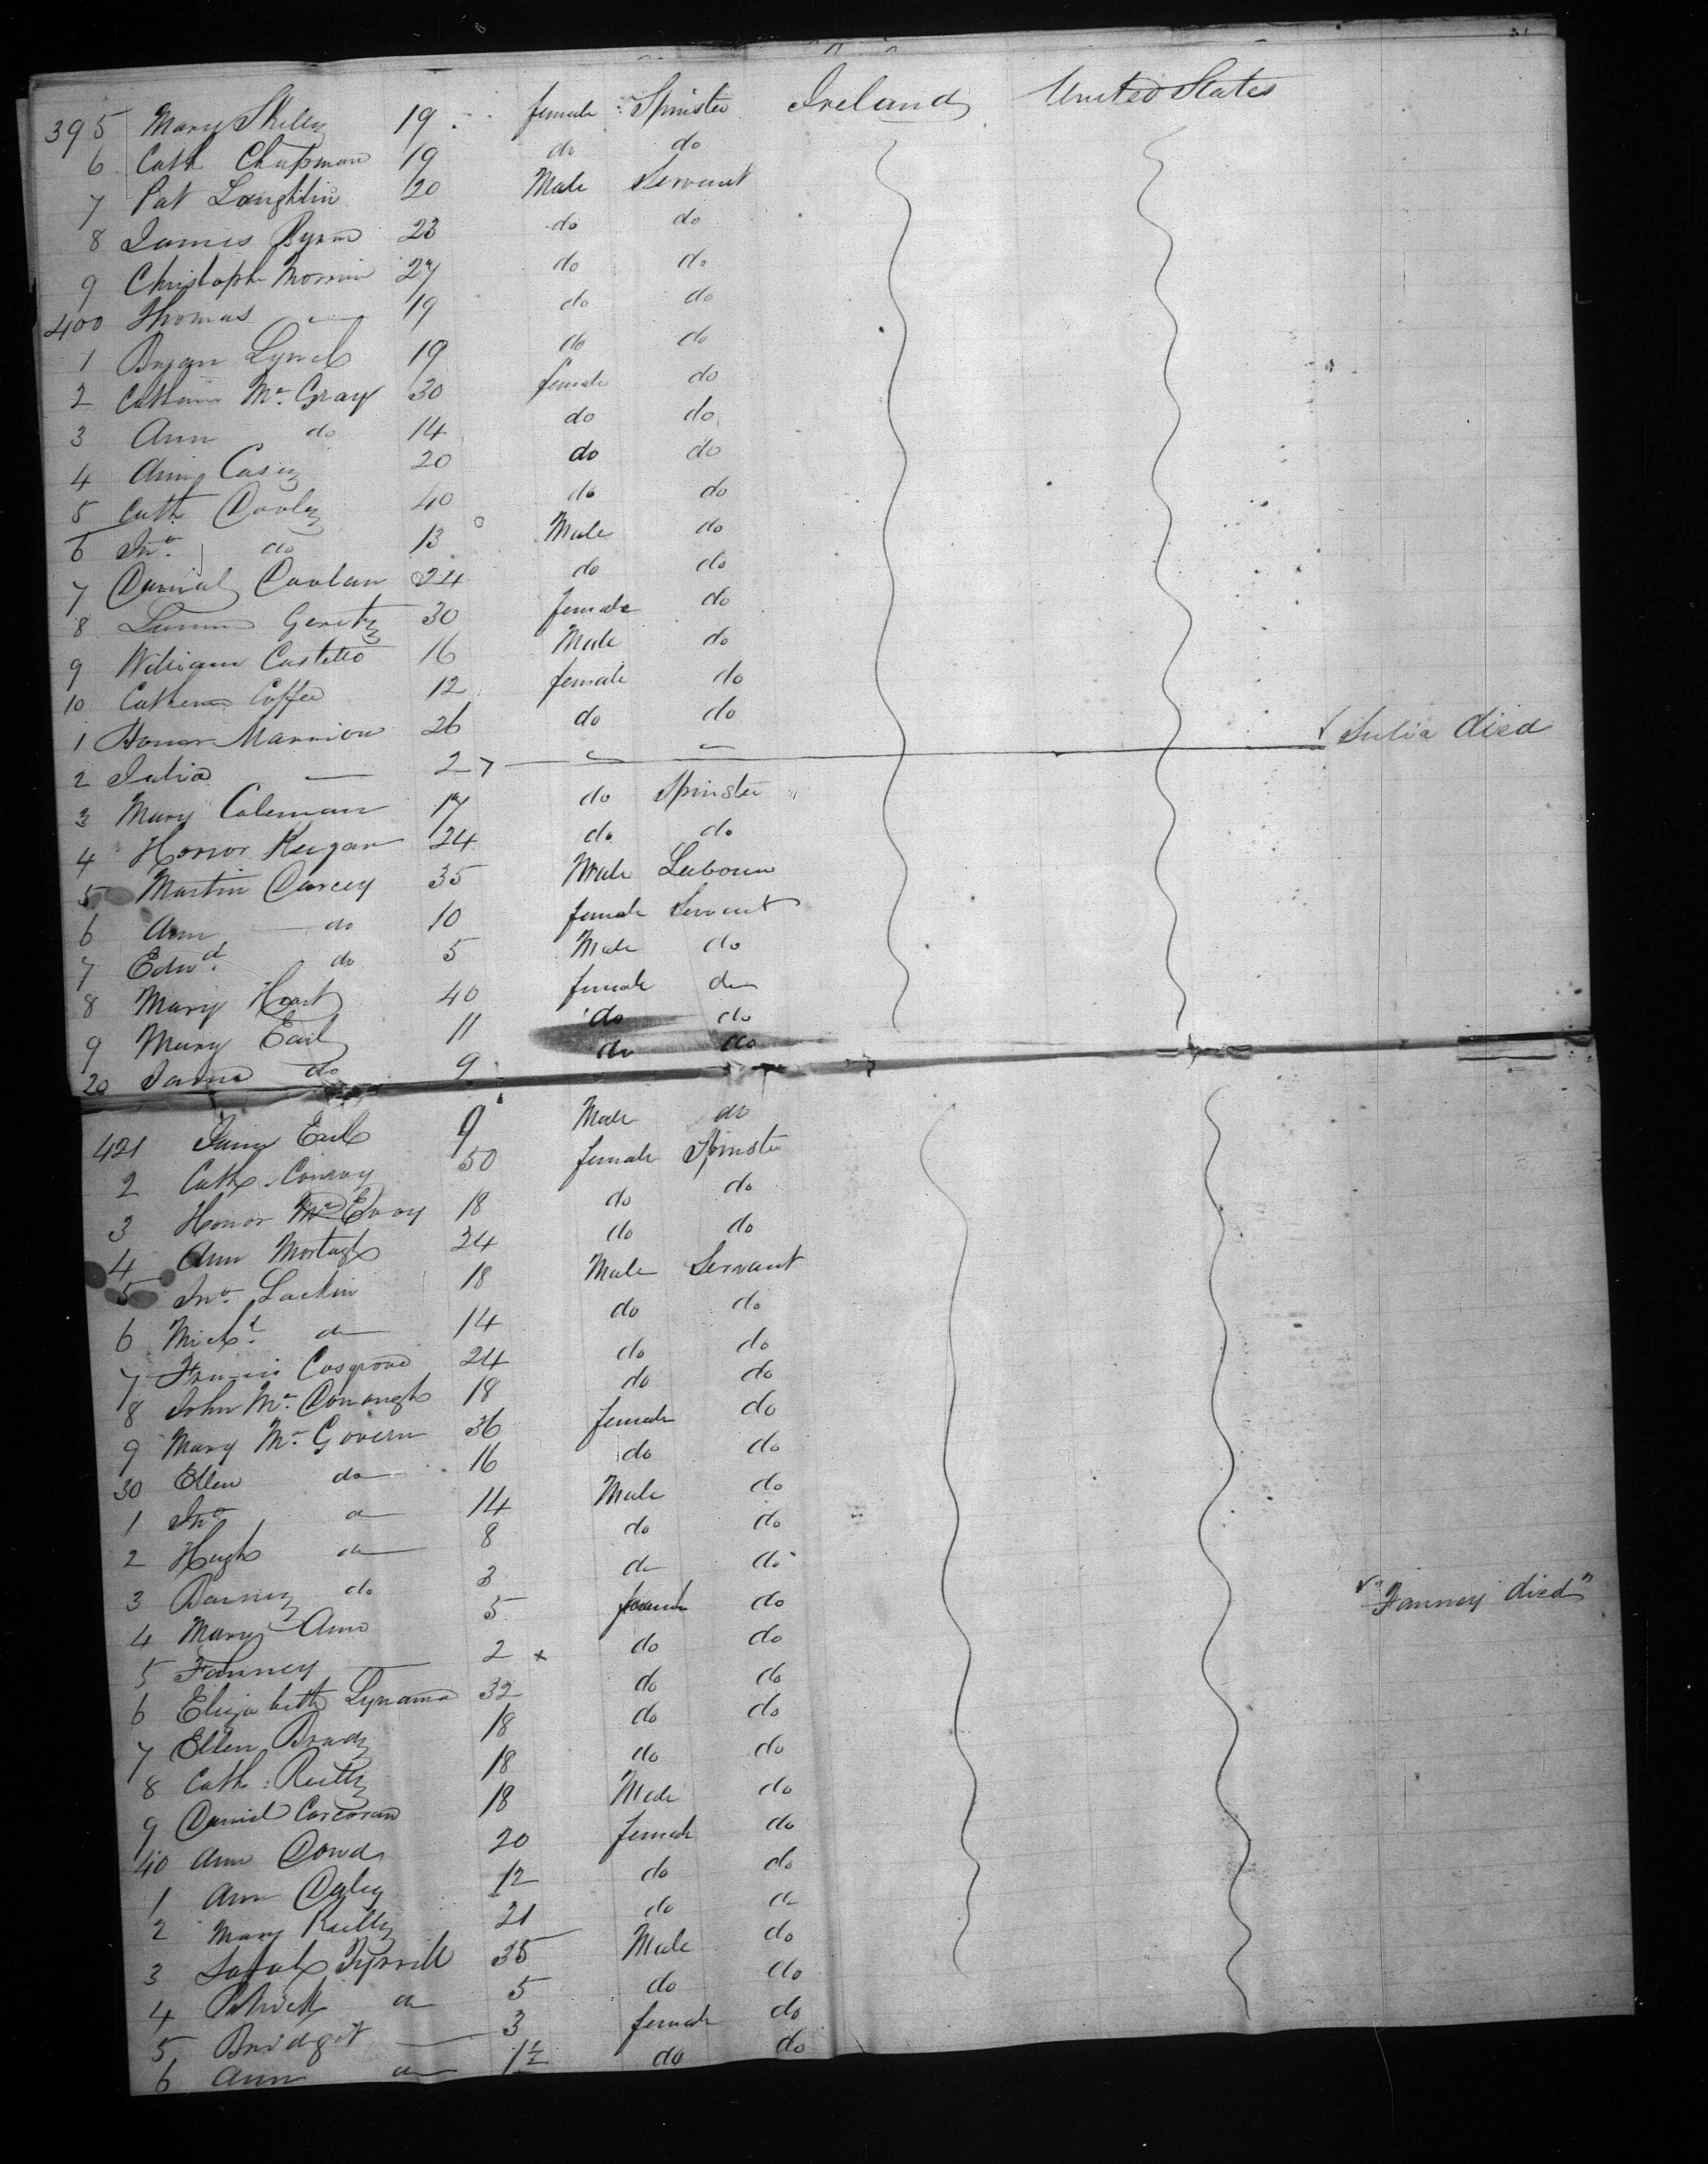 395 Mary Skelly 19 female Spinster Ireland United States
6 Cath Chapman 19 do do
7 Pat Loughlin 20 Male Servant
8 James Byrne 23 do do
9 Christoph 27 do do
400 Thomas — 19 do do
1 Bryan Lynch 19 do do
2 Catherine Mc Gray 30 female do
3 Ann do 14 do do
4 Ann Casey 20 do do
5 Cath Dooley 40 do do
6 Jno. do 13 Male do
7 Daniel Doolan 24 do do
8 Gerity 30 female do
9 William Costello 16 Male do
10 Catherine Coffee 12 female do
1 Honor Mannion 26 do do
2 Julia — 2 Julia died
3 Mary Coleman 17 do Spinster
4 Honor Keegan 24 do do
5 Martin Darcey 35 Male Labourer
6 Ann do 10 female Servant
7 Edwd. do 5 Male do
8 Mary Hart 40 female do
9 Mary Earl 11 do do
20 do 9 do do
421 Earl 9 Male do
2 Cath. Conroy 50 female Spinster
3 Honor Mc Evoy 18 do do
4 Ann Mortagh 24 do do
5 Jno. Lackin 18 Male Servant
6 Michl. do 14 do do
7 Francis Cosgrove 24 do do
8 John Mc Donough 18 do do
9 Mary Mc Govern 36 female do
30 Ellen do 16 do do
1 Jno do 14 Male do
2 Hugh do 8 do do
3 Barney do 3 do do
4 Mary Ann 5 female do
5 Fanney — 2 x do do "Fanney died"
6 Elizabeth Lynama 32 do do
7 Ellen Brady 18 do do
8 Cath: Reilly 18 do do
9 Daniel Corcoran 18 Male do
40 Ann Dowd 20 female do
1 Ann Daley 12 do do
2 Mary Reilly 21 do do
3 Tyrrill 35 Male do
4 Patrick do 5 do do
5 Bridget — 3 female do
6 Ann do 1½ do do